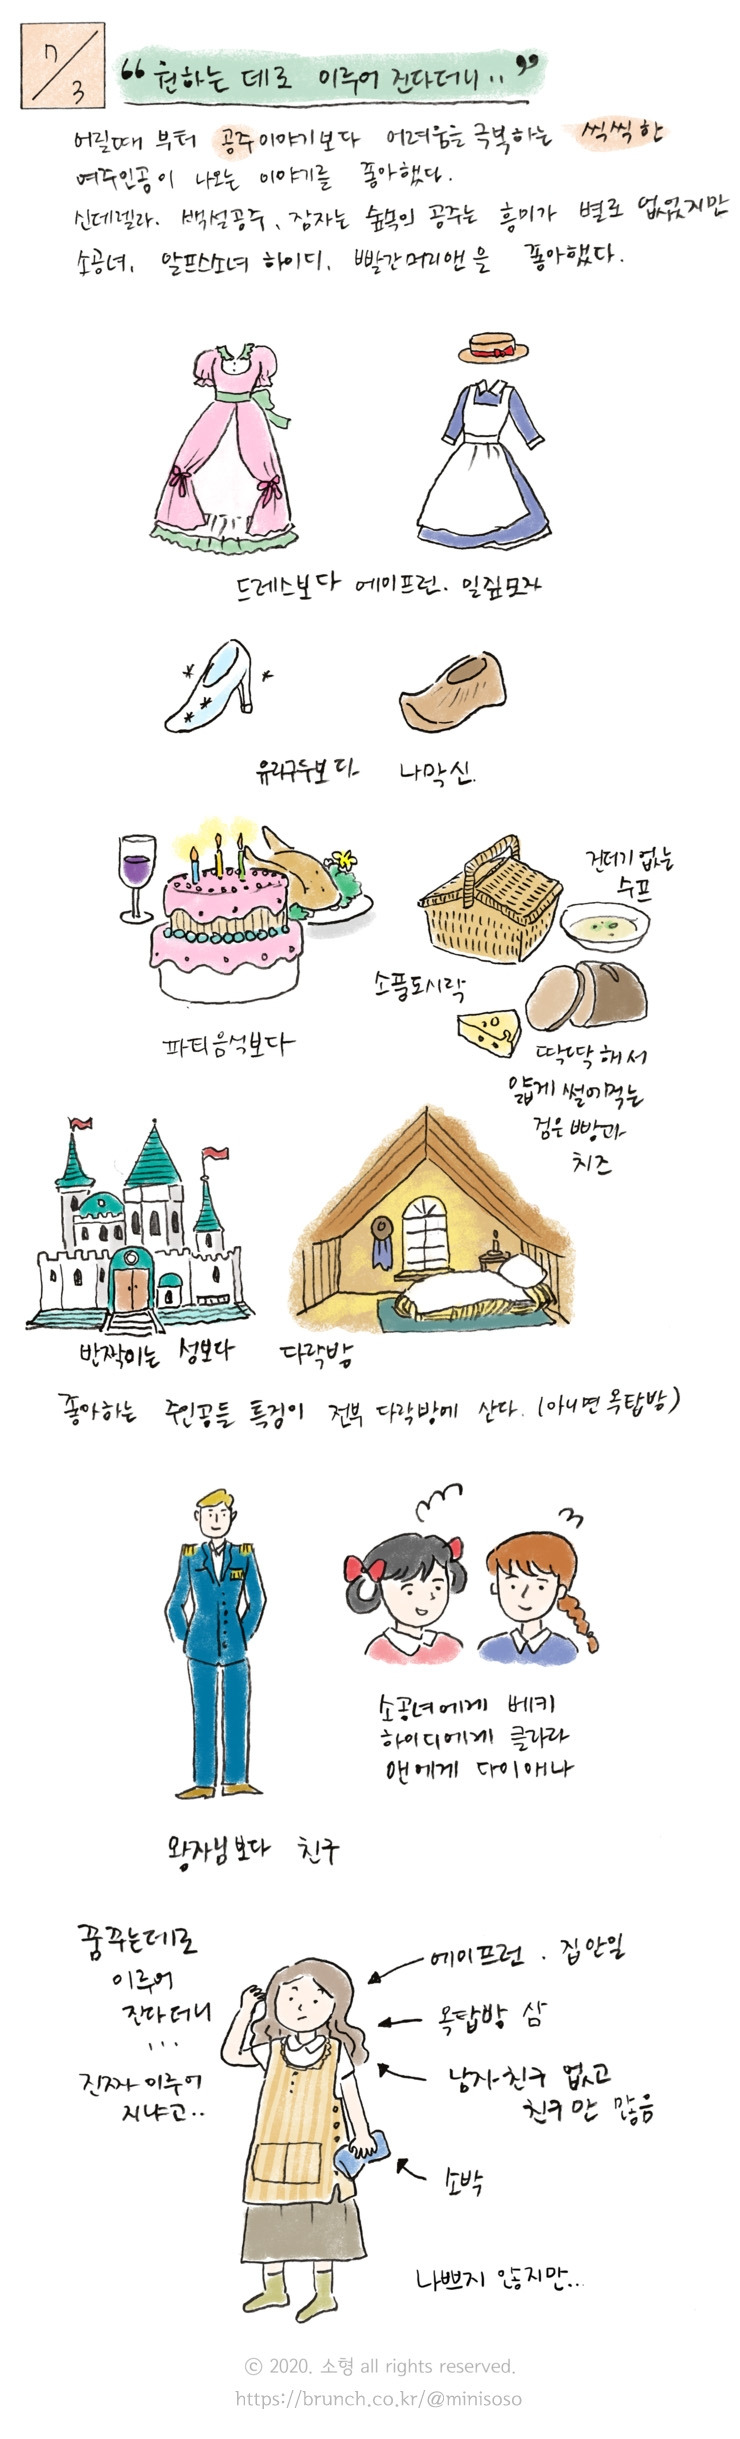 7/3
"원하는 데로 이루어 진다더니.."
어릴때 부터 공주이야기보다 어려움을 극복하는 씩씩한
여주인공이 나오는 이야기를 좋아했다.
신데렐라. 백설공주, 잠자는 숲속의 공주는 흥미가 별로 없었지만
소공녀, 알프스소녀 하이디, 빨간머리앤을 좋아했다.
드레스보다 에이프런. 밀짚모자
유리구두보다 나막신.
건더기 없는
수프
소풍도시락
파티음식보다
딱딱해서
얇게 썰어먹는
검은 빵과
치즈
반짝이는 성보다 다락방
좋아하는 주인공들 특징이 전부 다락방에 산다. (아니면 옥탑방)
소공녀에게 베키
하이디에게 클라라
앤에게 다이애나
왕자님보다 친구
꿈꾸는데로
이루어
진다더니
...
진짜 이루어
지냐고..
에이프런. 집안일
옥탑방 삶
남자친구 없고
친구만 많음
소박
나쁘지 않지만...
© 2020. 소형 all rights reserved.
https://brunch.co.kr/@minisoso